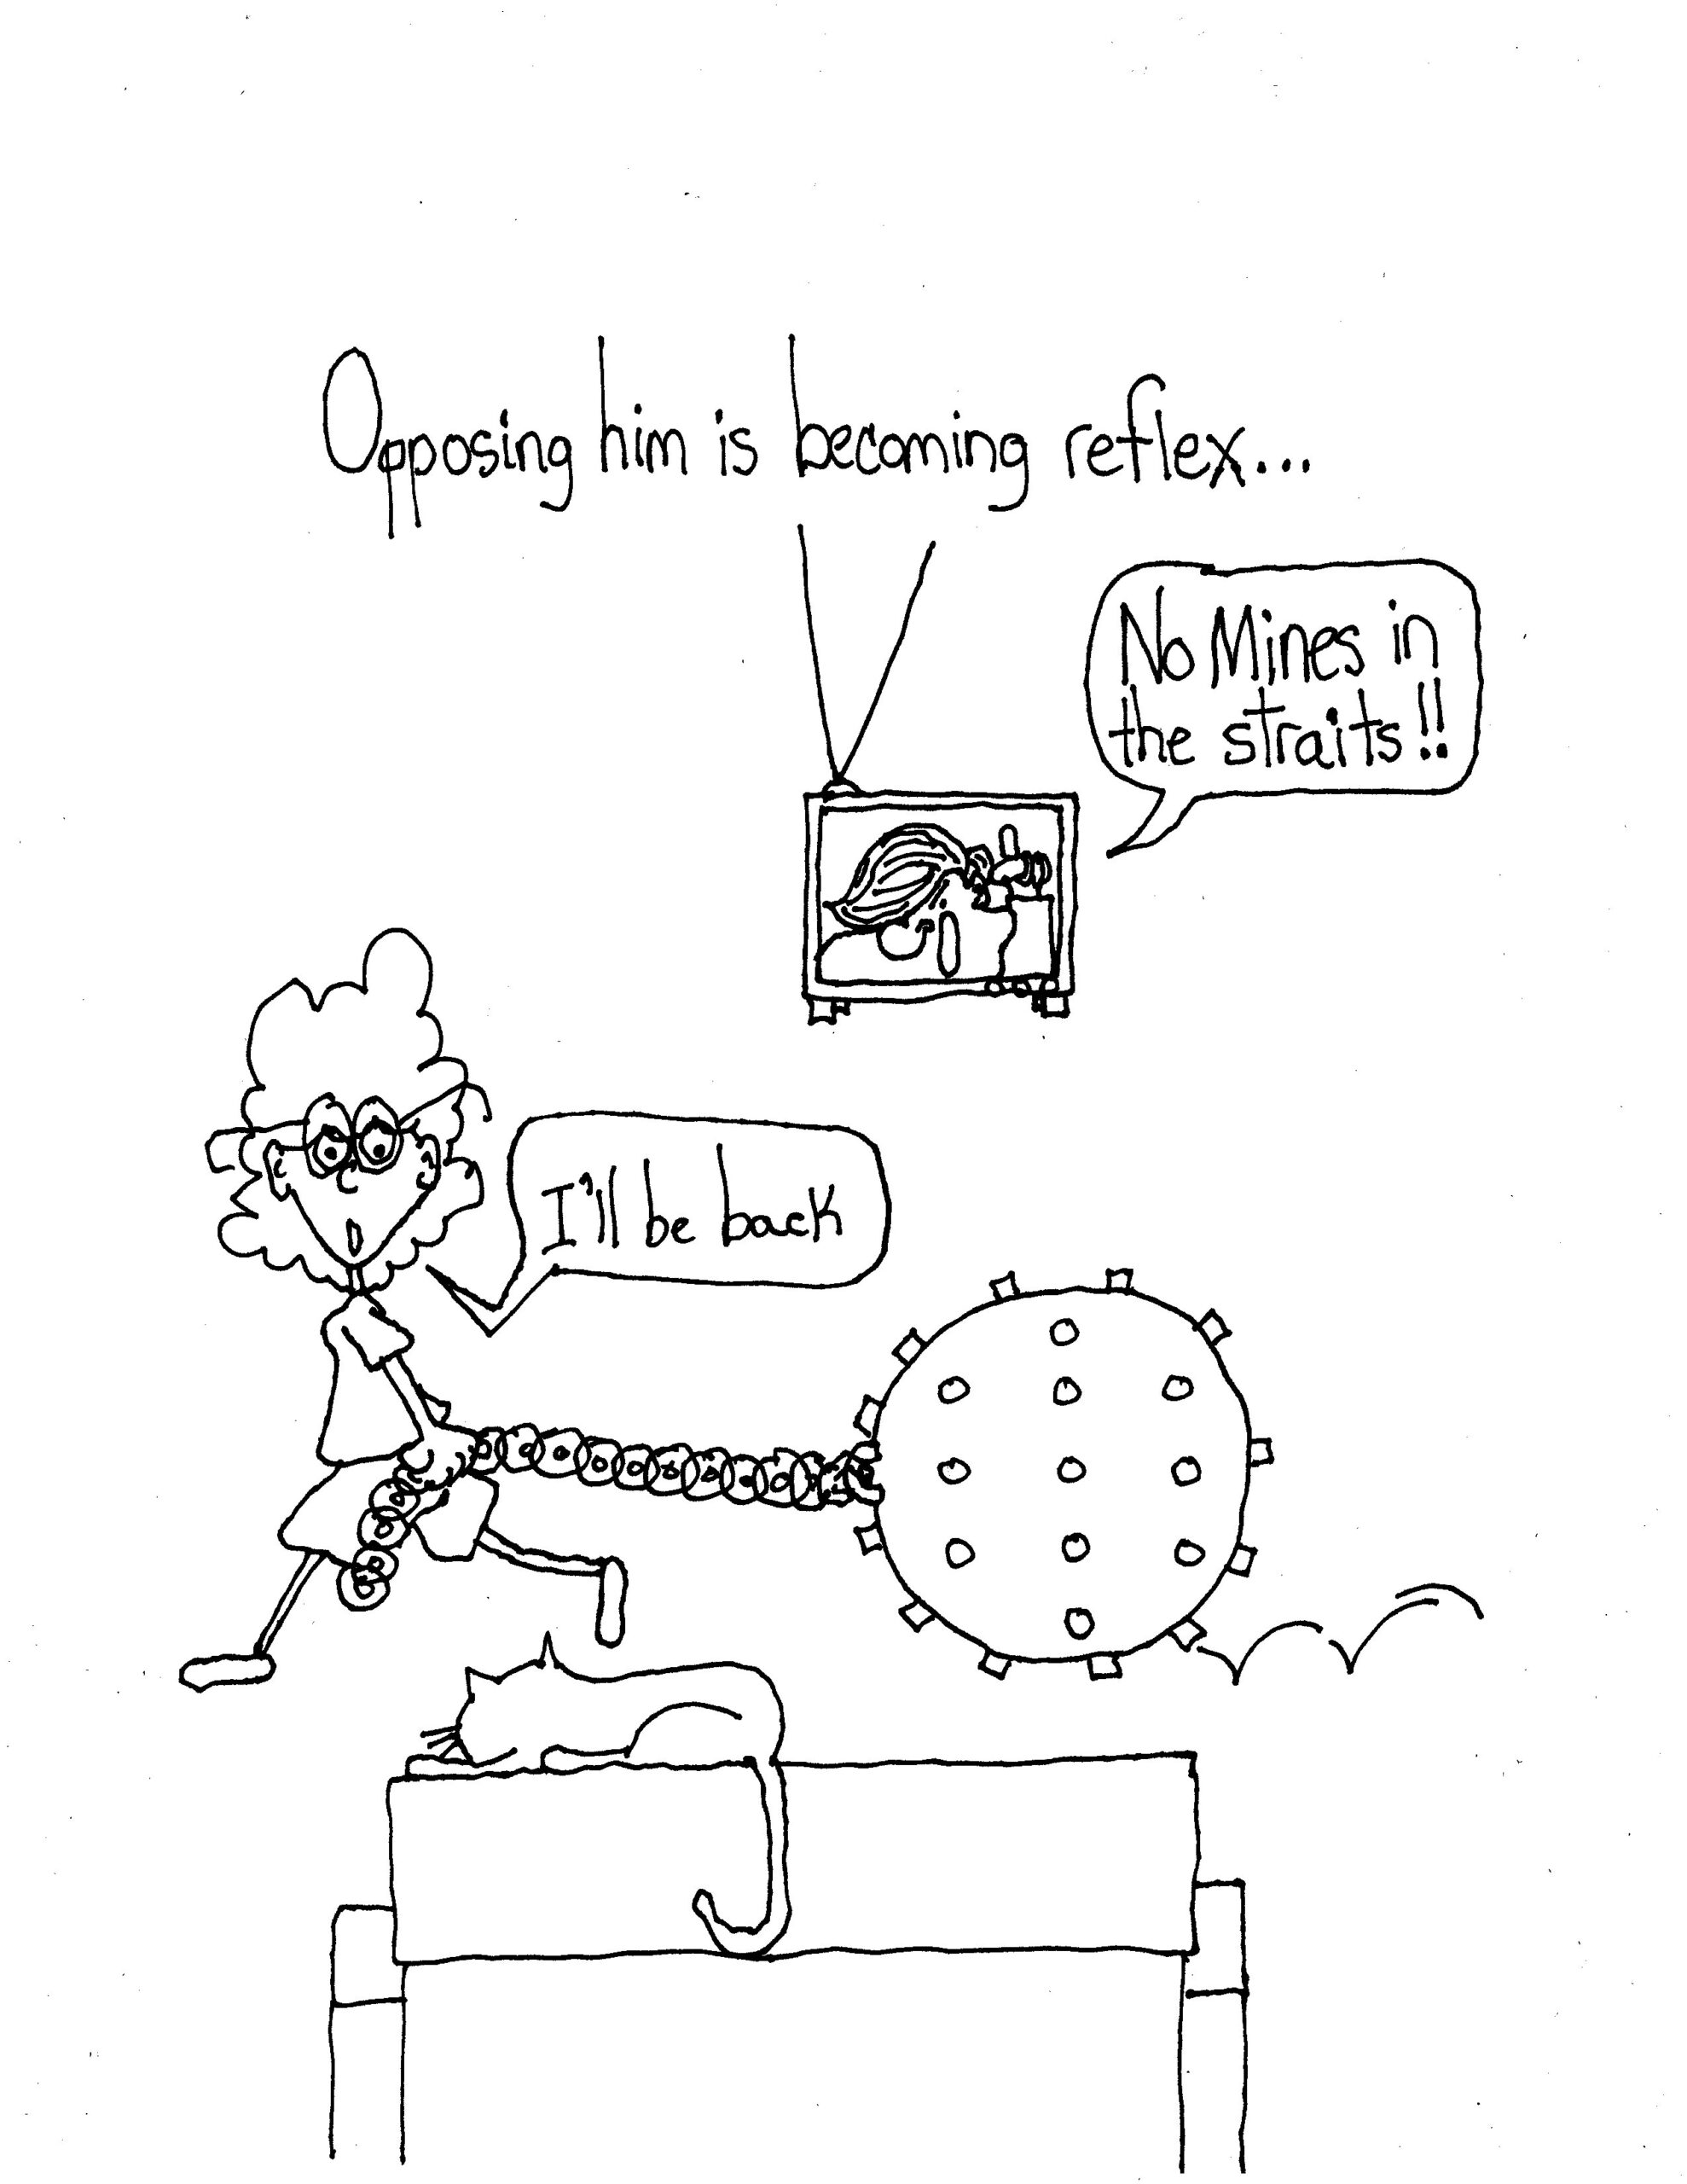 Opposing him is becoming reflex...
No Mines in
the straits!!
I'll be back